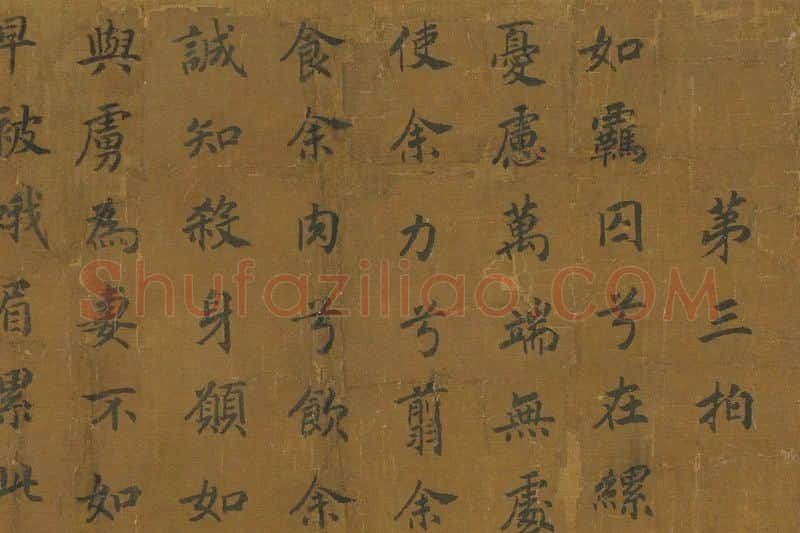 第三拍
如羈囚兮在縲
憂慮萬端無處
使余力兮翦余
食余肉兮飲余
誠知殺身願如
與虜為妻不如
早被蛾眉累此
Shufaziliao.COM